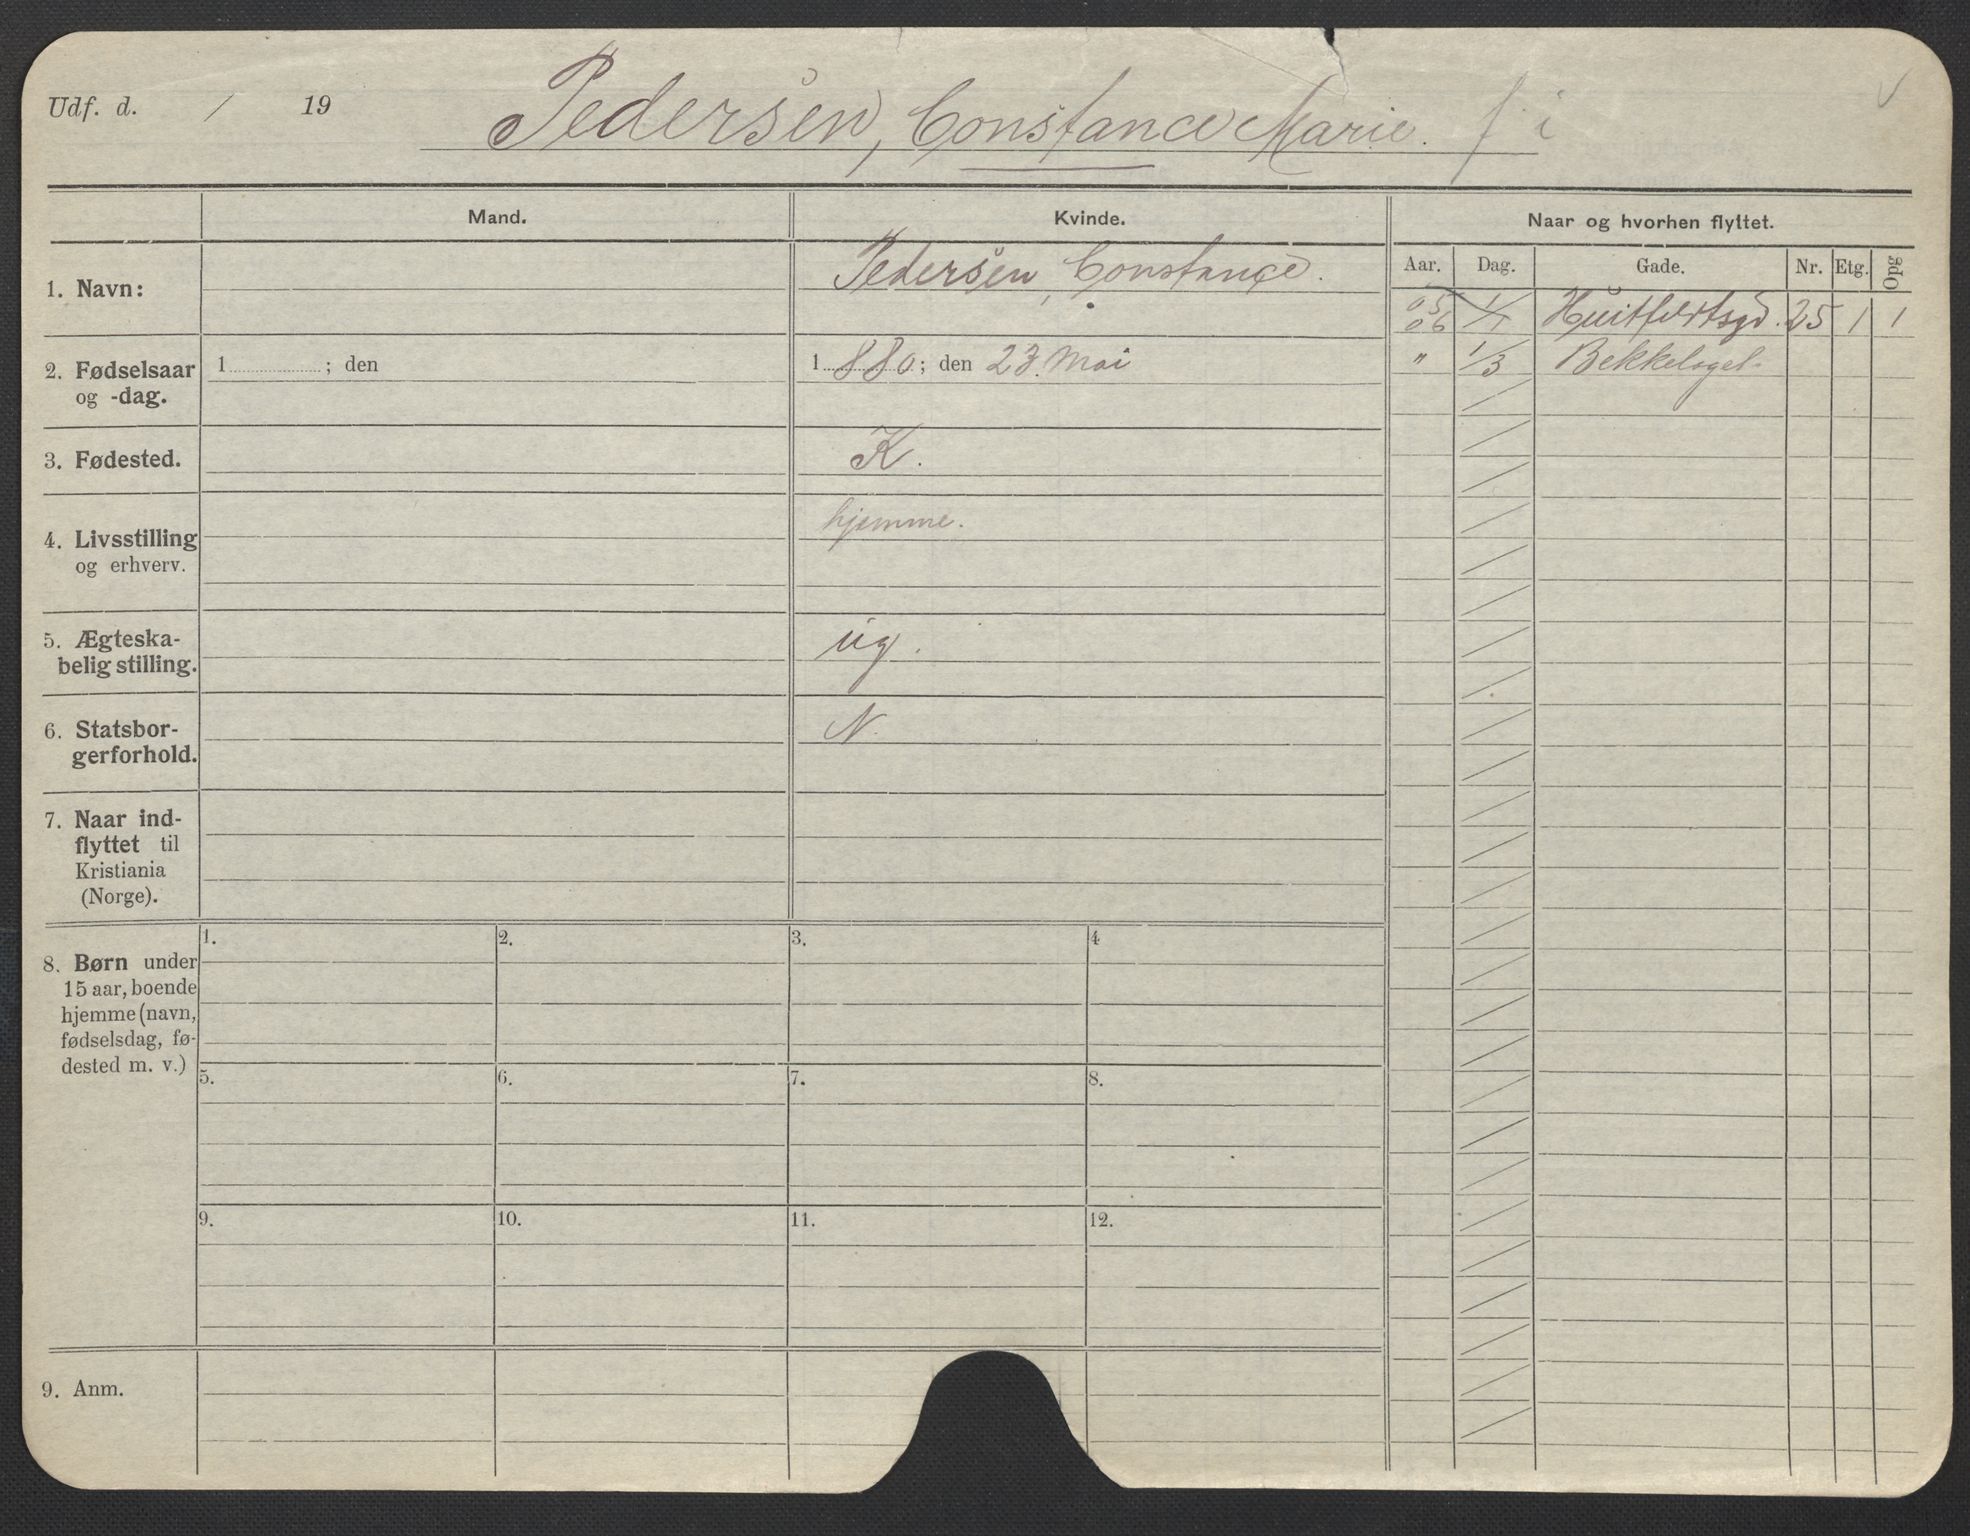 Udf. d. / 19 Pedersen, Constance Marie. f i
Mand. Kvinde. Naar og hvorhen flyttet.
Aar. Dag. Gade. Nr. Etg. Opg
1. Navn: Pedersen, Constance.
05 06 1/1 Huitfeldtsgd. 25 1 1
" 1/3 Bekkelaget.
2. Fødselsaar 1 ; den 1 880 ; den 27. Mai
og -dag.
3. Fødested. K.
4. Livsstilling hjemme.
og erhverv.
5. Ægteska- ug.
belig stilling.
6. Statsbor- N.
gerforhold.
7. Naar ind-
flyttet til
Kristiania
(Norge).
1. 2. 3. 4
8. Børn under
15 aar, boende
hjemme (navn,
fødselsdag, fø-
dested m. v.)
5. 6. 7. 8.
9. 10. 11. 12.
9. Anm.